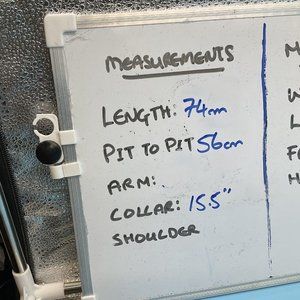 MEASUREMENTS
LENGTH: 74cm
PIT TO PIT 56cm
ARM:
COLLAR: 15.5"
SHOULDER